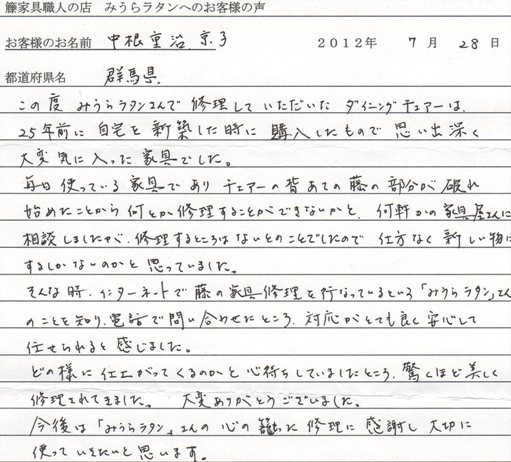 籐家具職人の店　みうらラタンへのお客様の声
お客様のお名前　中根重治　京子　2012年　7月　28日
都道府県名　群馬県
この度　みうらラタンさんで　修理していただいた　ダイニングチェアーは、
25年前に　自宅を　新築した時に　購入したもので　思い出深く
大変気に入った　家具でした。
毎日　使っている　家具であり　チェアーの背あての藤の部分が　破れ
始めたことから何とか修理することができないかと、何軒かの家具屋さんに
相談しましたが、修理するところはないとのことでしたので　仕方なく　新しい物に
するしかないのかと　思っていました。
そんな時、インターネットで　藤の家具修理を行なっているという「みうらラタン」さん
のことを知り、電話で問い合わせたところ、対応がとても良く　安心して
任せられると感じました。
どの様に　仕上がってくるのかと　心待ちしていましたところ、驚くほど美しく
修理されてきました。　大変ありがとうございました。
今後は「みうらラタン」さんの　心の　籠った　修理に　感謝し　大切に
使っていきたいと思います。